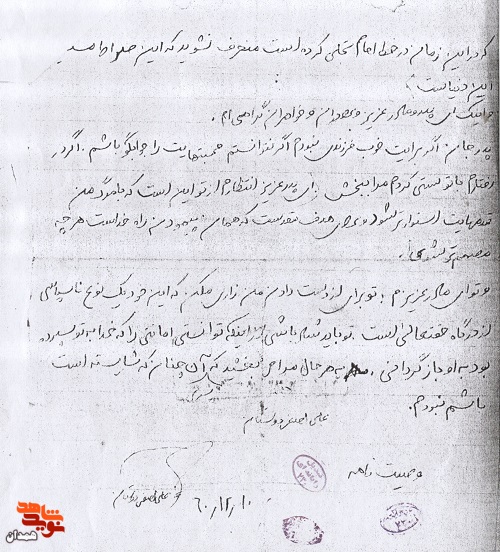 که در این زمان در خط امام تجلی کرده است منحرف نشوید که این صراط
این دنیاست
و اینک ای پدر و مادر عزیز و برادران و خواهران گرامی ام.
پدر جان: اگر برایت خوب فرزندی نبودم اگر نتوانستم محبتهایت را جوابگو باشم. اگر در
احترام با تو سستی کردم مرا ببخش. ای پدر عزیز انتظارم از تو این است که با مرگ من
قدمهایت استوارتر شود و برای هدف مقدست که همان پیمودن راه خداست هر چه
مصمم تر شوی.
و تو ای مادر عزیزم: تو برای از دست دادن من زاری مکن. که این خود یک نوع ناسپاسی
از درگاه حقتعالی است. تو باید شاد باشی از اینکه توانستی امانتی را که خدا به تو سپرده
بود به او باز گردانی. به هر حال مرا می بخشید که آن چنان که شایسته است
باشم نبودم.
علی اصغر
وصیت نامه
علی اصغر
۶۰/۱۲/۱۰
نوید شاهد
همدان